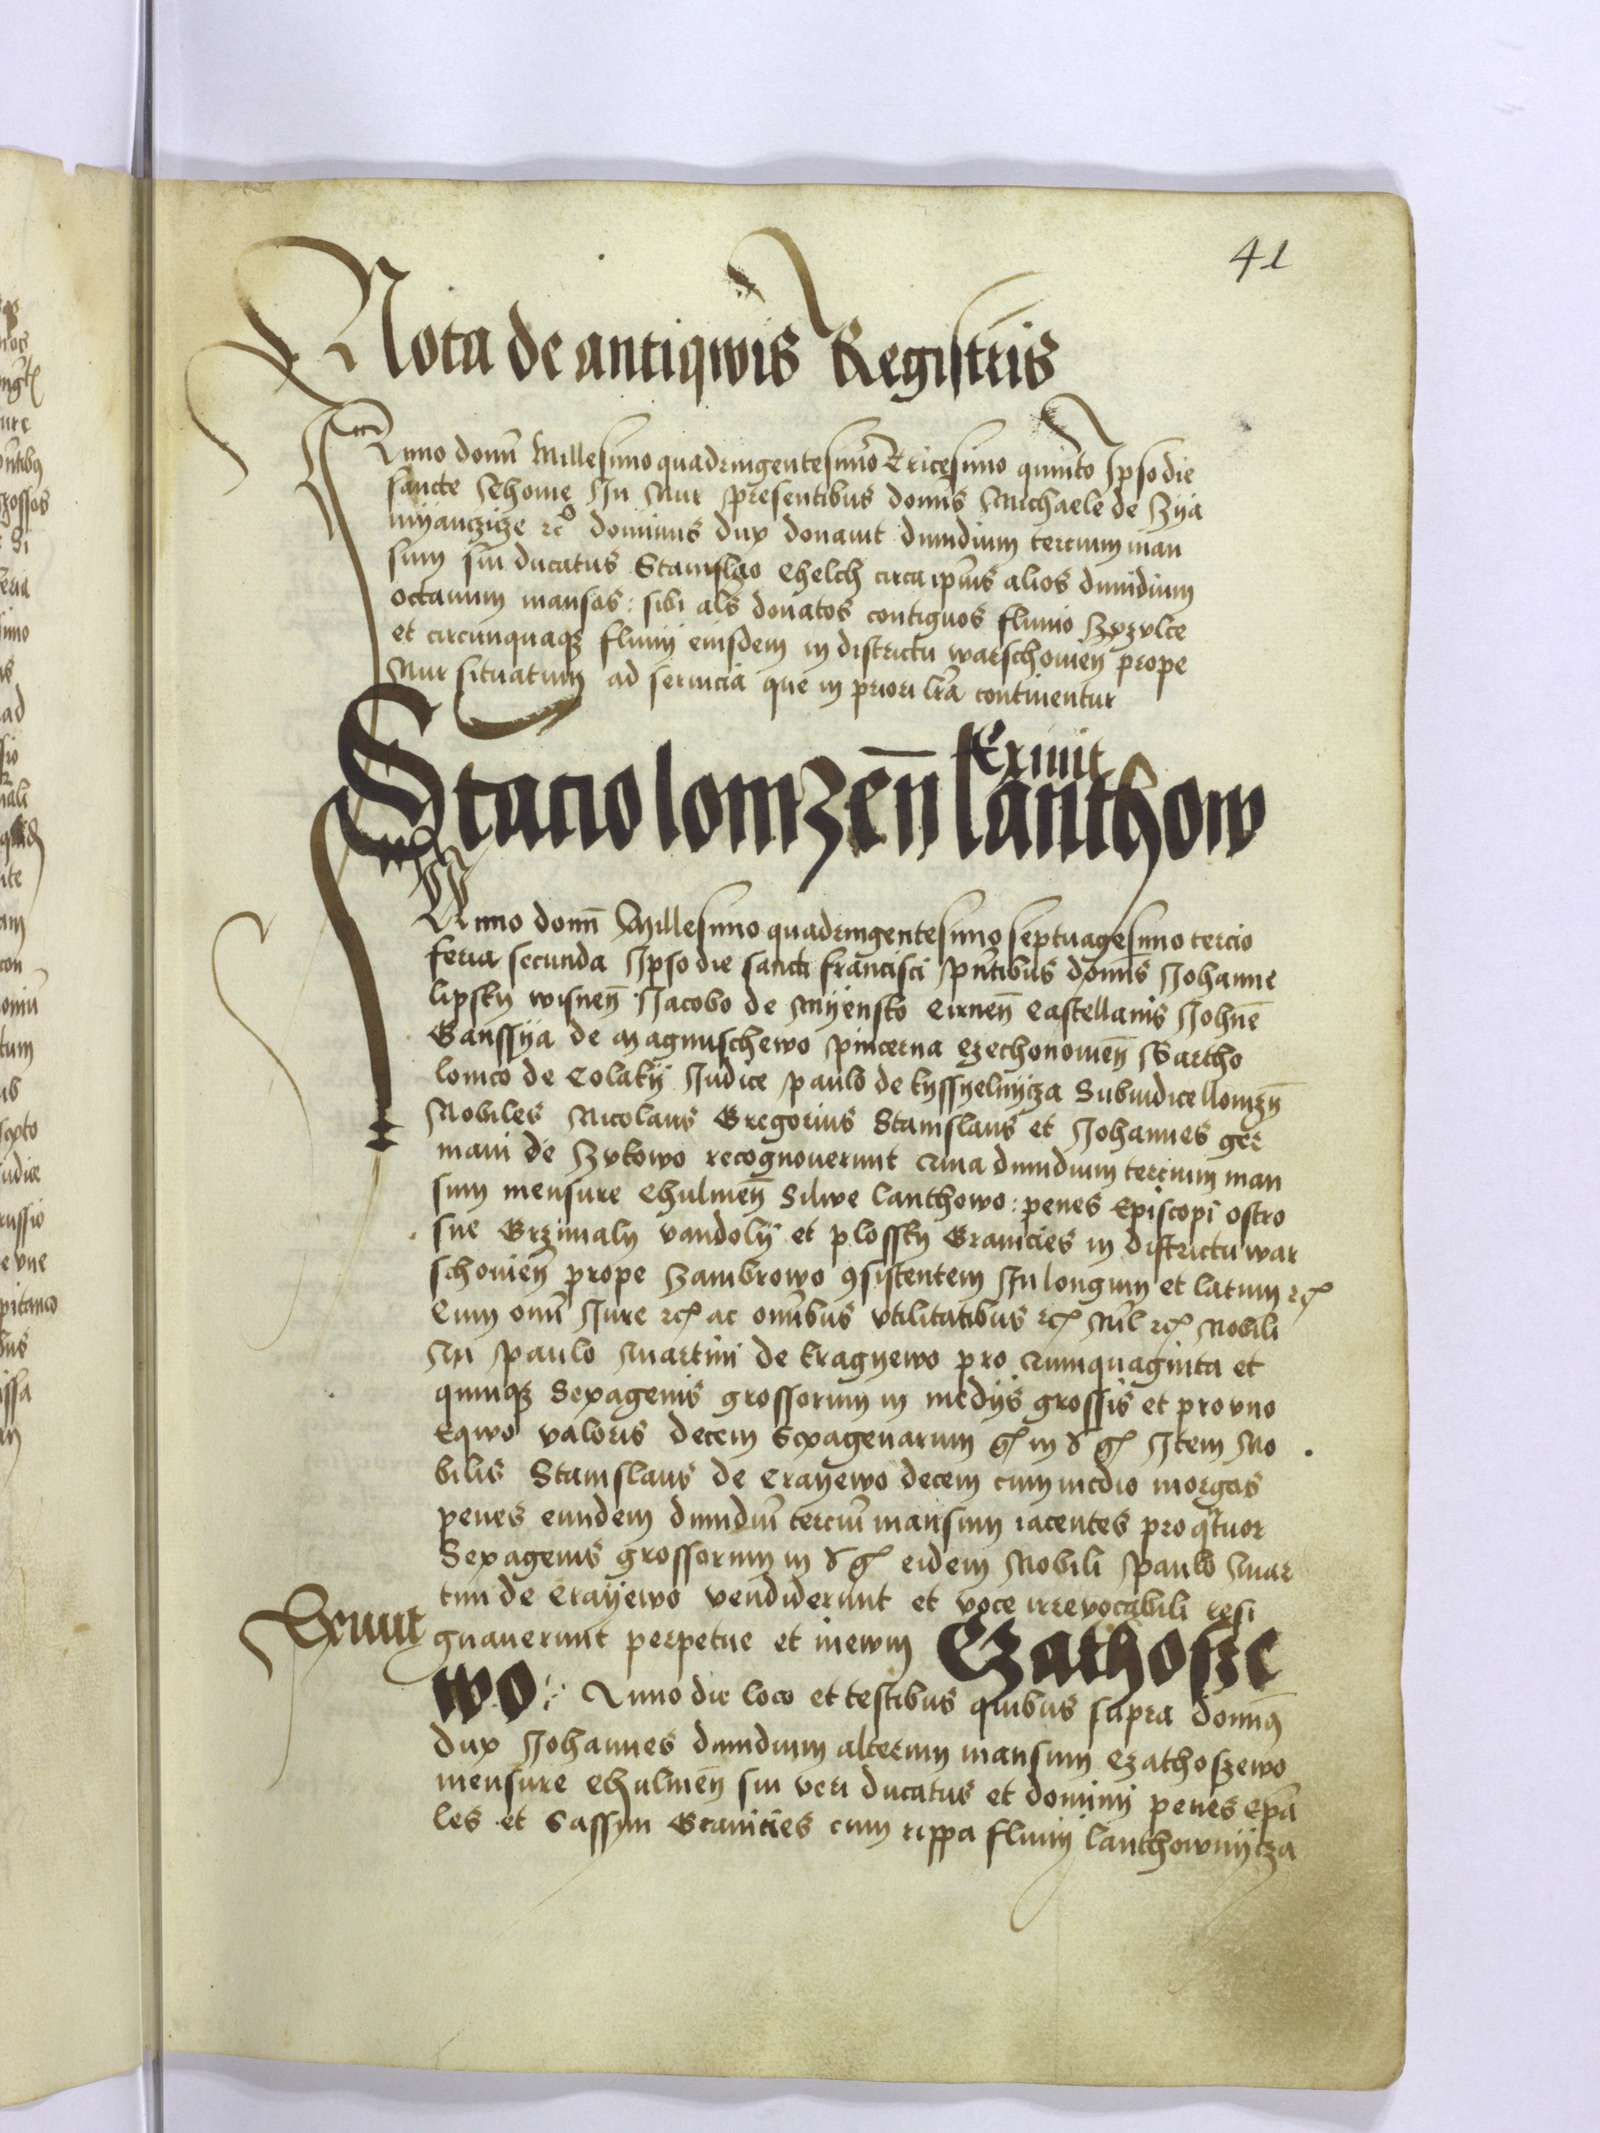 41
Nota de antiqwis Registris
Anno domī Millesimo quadringentesimo Tricesimo quinto Ipso die
sancte In Mur presentibus domīs Michaele de
rc° dominus dux donavit dimidium tercium man
sum sui ducatus Stanislao Chelch circa ipsius alios dimidium
octavum mansos : sibi als donatos contiguos fluvio
et circunquaqȝ fluvij eiusdem in districtu warschovieñ prope
Mur situatum ad servicia que in priori lr̄a continentur
Exivit
Stacio lomzeñ lanthow
Anno domī Millesimo quadringentesimo septuagesimo tercio
feria secunda Ipso die sancti francisci pn̄tibus domīs Iohanne
lipsky wisneñ Iacobo de Myensko Cirneñ Castellanis Iohn̄e
Ganssya de Magnuschewo pincerna Czechonovieñ Bartho
lomeo de Colaky Iudice paulo de kyssyelnycza Subiudice llomzn̄
Nobiles Nicolaus Gregorius Stanislaus et Iohannes ger
mani de Zukowo recognoverunt Quia dimidium tercium man
sum mensure Chulmeñ Silwe lanthowo : penes Episcopi ostro
sne Grzimaly vandoly et plossky Granicies in districtu war
schovieñ prope Zambrowo 9sistentem In longum et latum rcꝭ
Cum omī Iure rcꝭ ac om̄ibus vtilitatibus rcꝭ Nil rcꝭ Nobili
Paulo Martini de kragyewo pro quinquaginta et
quinqȝ Sexagenis grossorum in medijs grossis et pro vno
Eqwo valoris decem Sexagenarum gꝭ in gꝭ Item No
bilis Stanislaus de Crayewo decem cum medio morgos
penes eundem dimidiū terciū mansum iacentes pro qtuor
Sexagenis grossorum in gꝭ eidem Nobili Paulo Mar
tini de Crayewo vendiderunt et voce irrevocabili resi
Exivit gnaverunt perpetue et inewm Czathosze
wo : Anno die loco et testibus quibus supra domin9
dux Iohannes dimidium alterum mansum Czathoszewo
mensure Chulmeñ sui veri ducatus et dominij penes Epā
les et Sassyni Granicies cum rippa fluvij lanthownycza